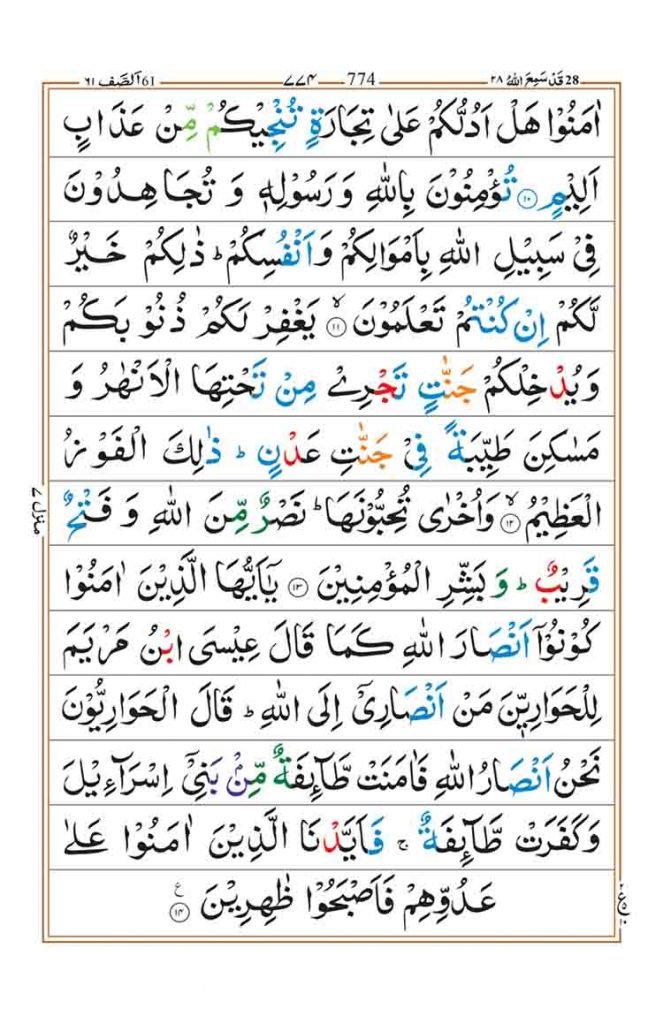 28 قَدْ سَمِعَ اللّٰهُ ٢٨
774 ٧٧٤
61 اَلصَّف ٦١
اٰمَنُوْا هَلْ اَدُلُّكُمْ عَلٰى تِجَارَةٍ تُنْجِيْكُمْ مِّنْ عَذَابٍ
اَلِيْمٍ ۝١٠ تُؤْمِنُوْنَ بِاللّٰهِ وَرَسُوْلِهٖ وَ تُجَاهِدُوْنَ
فِيْ سَبِيْلِ اللّٰهِ بِاَمْوَالِكُمْ وَاَنْفُسِكُمْ ؕ ذٰلِكُمْ خَيْرٌ
لَّكُمْ اِنْ كُنْتُمْ تَعْلَمُوْنَ ۝١١ۙ يَغْفِرْ لَكُمْ ذُنُوْبَكُمْ
وَيُدْخِلْكُمْ جَنّٰتٍ تَجْرِيْ مِنْ تَحْتِهَا الْاَنْهٰرُ وَ
مَسٰكِنَ طَيِّبَةً فِيْ جَنّٰتِ عَدْنٍ ؕ ذٰلِكَ الْفَوْزُ
الْعَظِيْمُ ۝١٢ۙ وَاُخْرٰى تُحِبُّوْنَهَا ؕ نَصْرٌ مِّنَ اللّٰهِ وَ فَتْحٌ
قَرِيْبٌ ؕ وَ بَشِّرِ الْمُؤْمِنِيْنَ ۝١٣ يٰۤاَيُّهَا الَّذِيْنَ اٰمَنُوْا
كُوْنُوْۤا اَنْصَارَ اللّٰهِ كَمَا قَالَ عِيْسَى ابْنُ مَرْيَمَ
لِلْحَوَارِيّٖنَ مَنْ اَنْصَارِيْۤ اِلَى اللّٰهِ ؕ قَالَ الْحَوَارِيُّوْنَ
نَحْنُ اَنْصَارُ اللّٰهِ فَاٰمَنَتْ طَّآئِفَةٌ مِّنْۢ بَنِيْۤ اِسْرَآءِيْلَ
وَكَفَرَتْ طَّآئِفَةٌ ۚ فَاَيَّدْنَا الَّذِيْنَ اٰمَنُوْا عَلٰى
عَدُوِّهِمْ فَاَصْبَحُوْا ظٰهِرِيْنَ ۝١٤ ع
منزل ٧